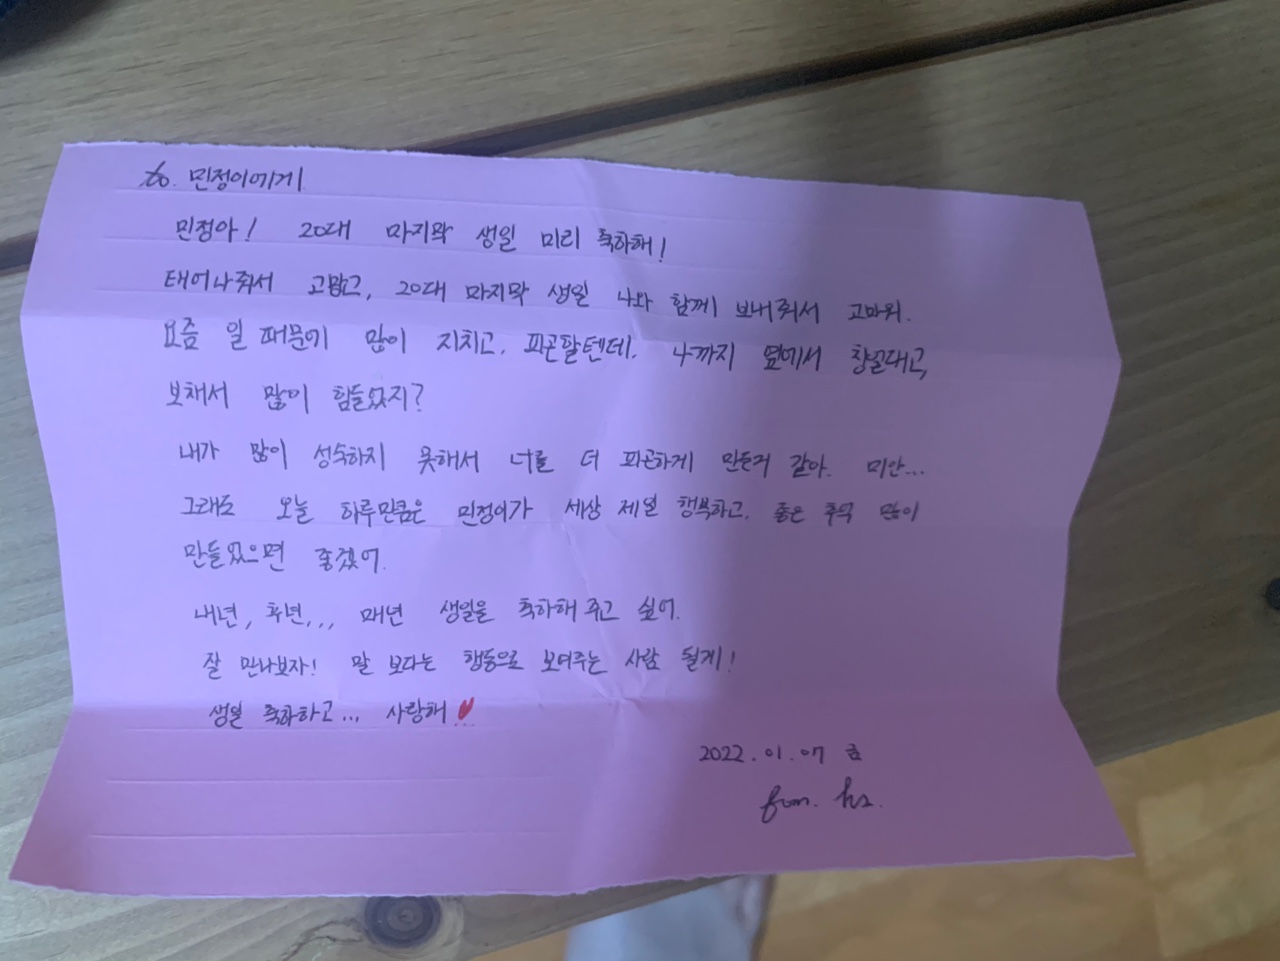 to. 민정이에게
민정아! 20대 마지막 생일 미리 축하해!
태어나줘서 고맙고, 20대 마지막 생일 나와 함께 보내줘서 고마워.
요즘 일 때문에 많이 지치고, 피곤할텐데, 나까지 옆에서 칭얼대고,
보채서 많이 힘들었지?
내가 많이 성숙하지 못해서 너를 더 피곤하게 만든거 같아. 미안...
그래도 오늘 하루만큼은 민정이가 세상 제일 행복하고, 좋은 추억 많이
만들었으면 좋겠어.
내년, 후년,,, 매년 생일을 축하해 주고 싶어.
잘 만나보자! 말 보다는 행동으로 보여주는 사람 될게!
생일 축하하고... 사랑해 ♥
2022.01.07 금
from. hs.